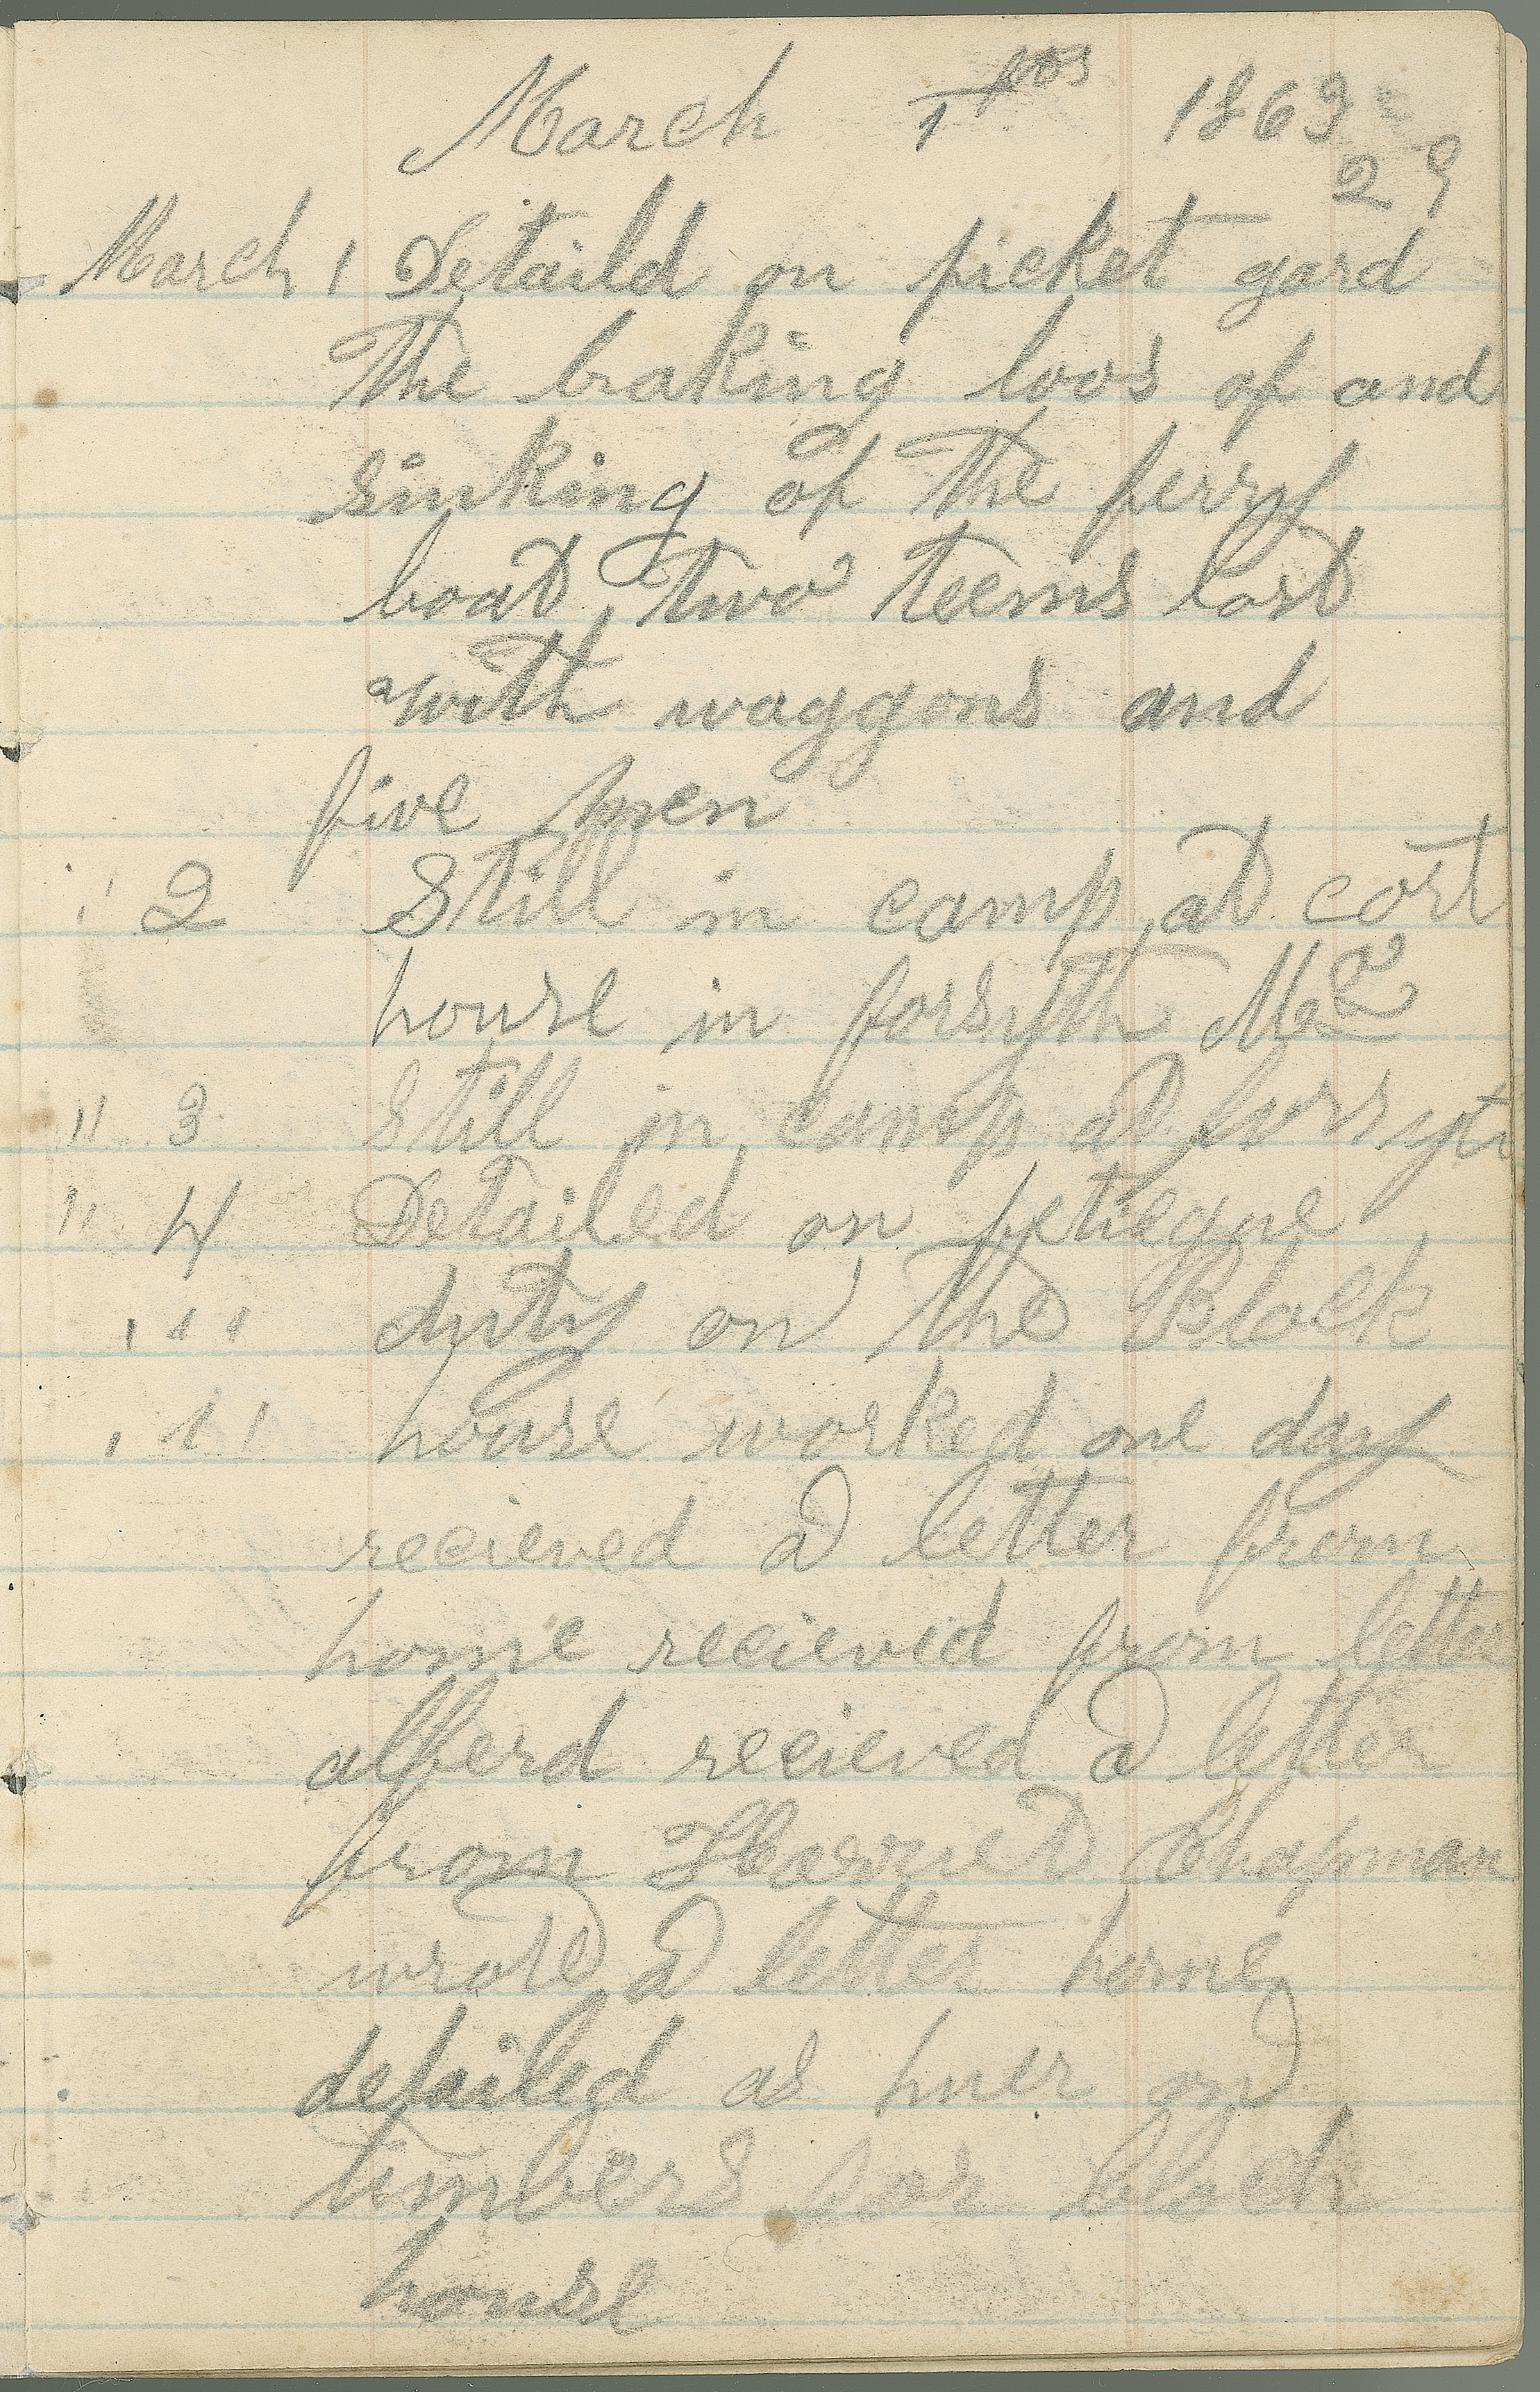 March 1 1863
29
March 1 Detaild on picket gard
The braking loos of and
sinking of the ferry
boat two teems lost
with waggons and
five men
" 2 Still in camp at cort
house in forsyth Mo
" 3 Still in camp at forsyth
" 4 Detailed on fetiegue
" " duty on the Block
" " house worked one day
recieved a letter from
home recieved from letter
alferd recieved a letter
from Harriet Chapman
wrote a letter home
detailed as huer on
timbers for block
house